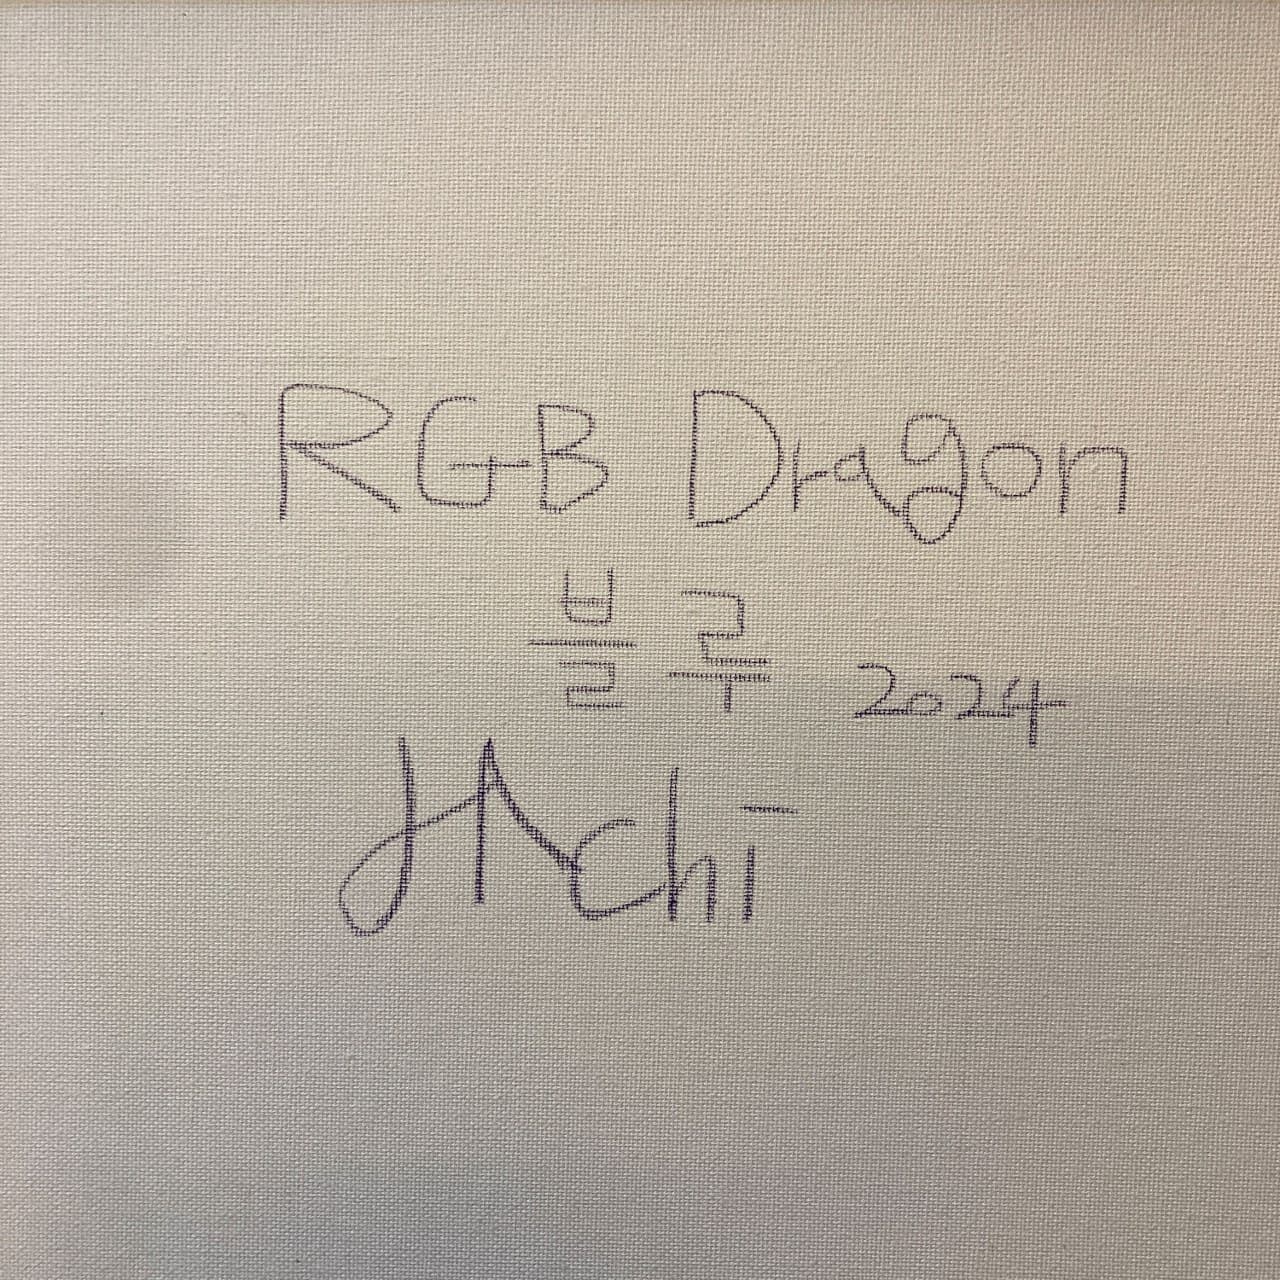 RGB Dragon
블루 2024
HAchi